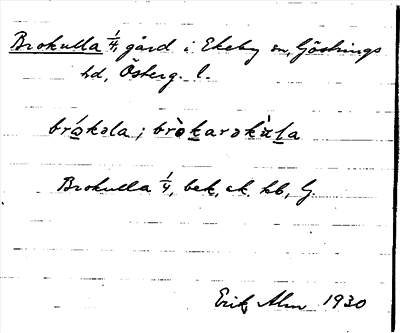 Brokulla 1/4, gård i Ekeby sn, Göstrings
hd, Österg. l.
bró̱kəla; brò̱ḵarəkùḻa
Brokulla 1/4, bek, ek. kb, G
Erik Alm 1930